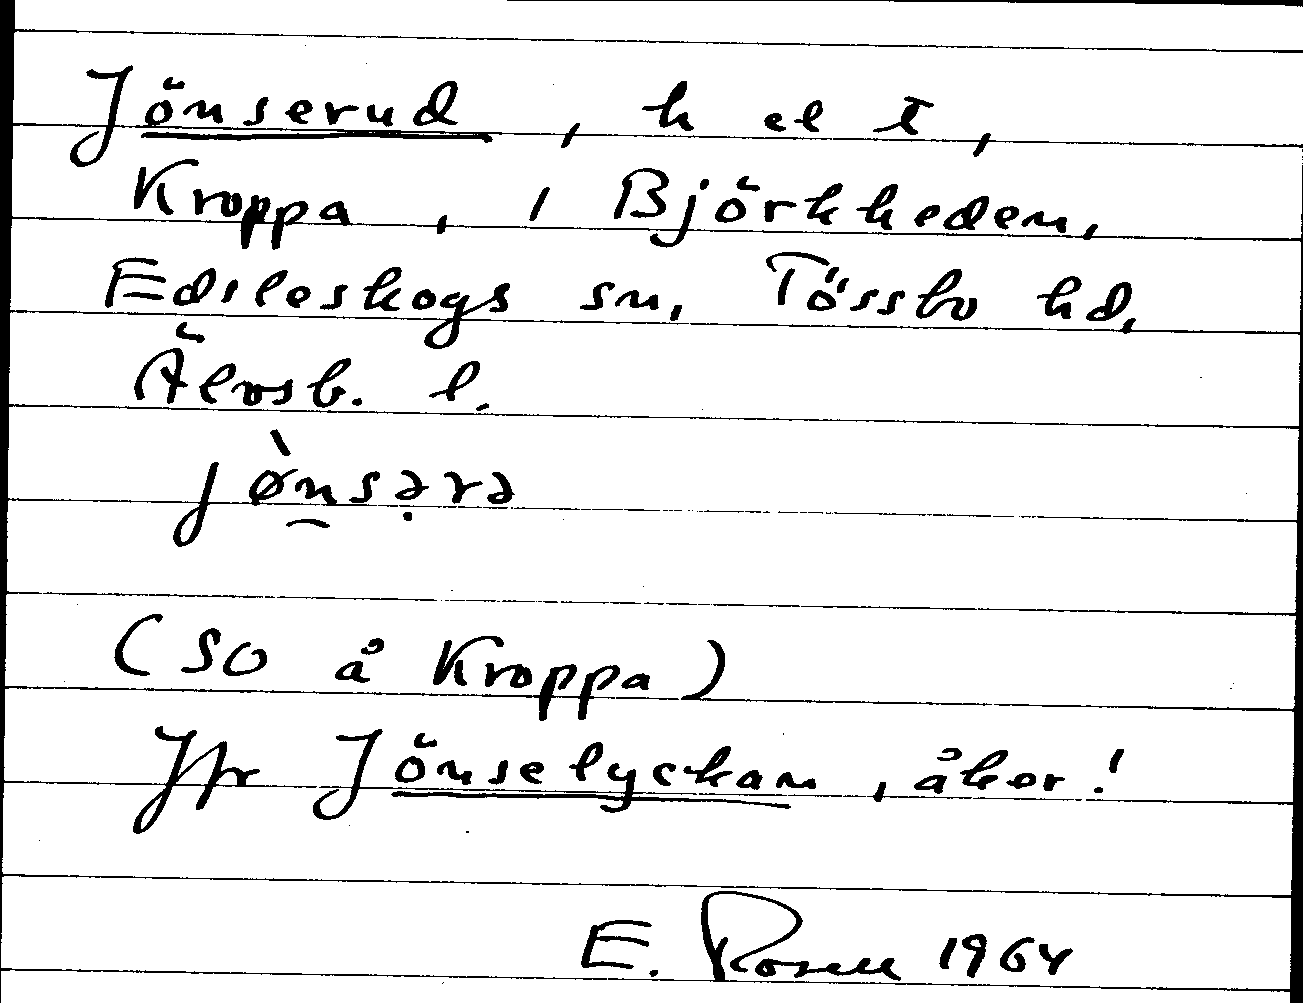 Jönserud, h el t,
Kroppa, i Björkheden,
Edsleskogs sn, Tössbo hd,
Älvsb. l.
jø̀n̯sə̣rə
(SO å Kroppa)
Jfr Jönselyckan, åker!
E. Rosell 1964